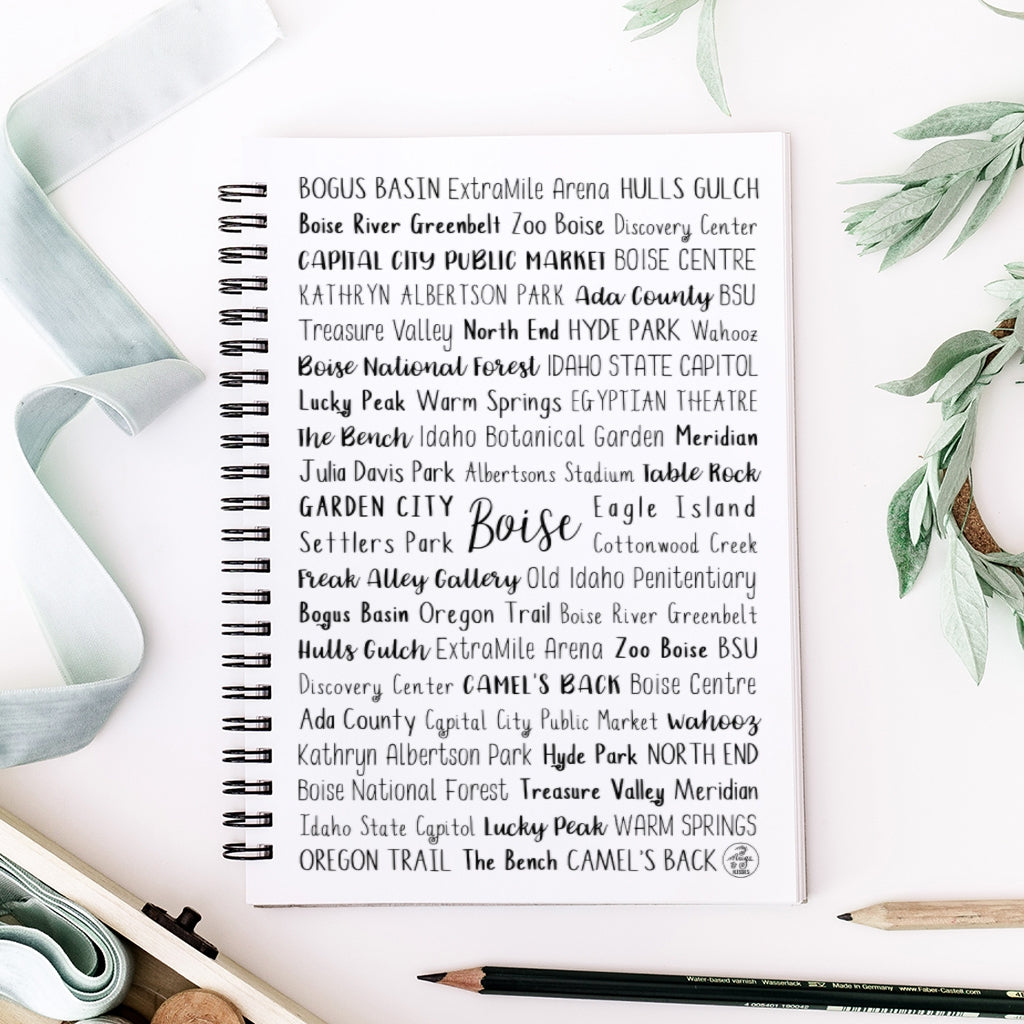 BOGUS BASIN ExtraMile Arena HULLS GULCH
Boise River Greenbelt Zoo Boise Discovery Center
CAPITAL CITY PUBLIC MARKET BOISE CENTRE
KATHRYN ALBERTSON PARK Ada County BSU
Treasure Valley North End HYDE PARK Wahooz
Boise National Forest IDAHO STATE CAPITOL
Lucky Peak Warm Springs EGYPTIAN THEATRE
The Bench Idaho Botanical Garden Meridian
Julia Davis Park Albertsons Stadium Table Rock
GARDEN CITY Boise Eagle Island
Settlers Park Cottonwood Creek
Freak Alley Gallery Old Idaho Penitentiary
Bogus Basin Oregon Trail Boise River Greenbelt
Hulls Gulch ExtraMile Arena Zoo Boise BSU
Discovery Center CAMEL'S BACK Boise Centre
Ada County Capital City Public Market Wahooz
Kathryn Albertson Park Hyde Park NORTH END
Boise National Forest Treasure Valley Meridian
Idaho State Capitol Lucky Peak WARM SPRINGS
OREGON TRAIL The Bench CAMEL'S BACK
Water-based varnish Wasserlack Made in Germany www.Faber-Castell.com
4 005401 190042